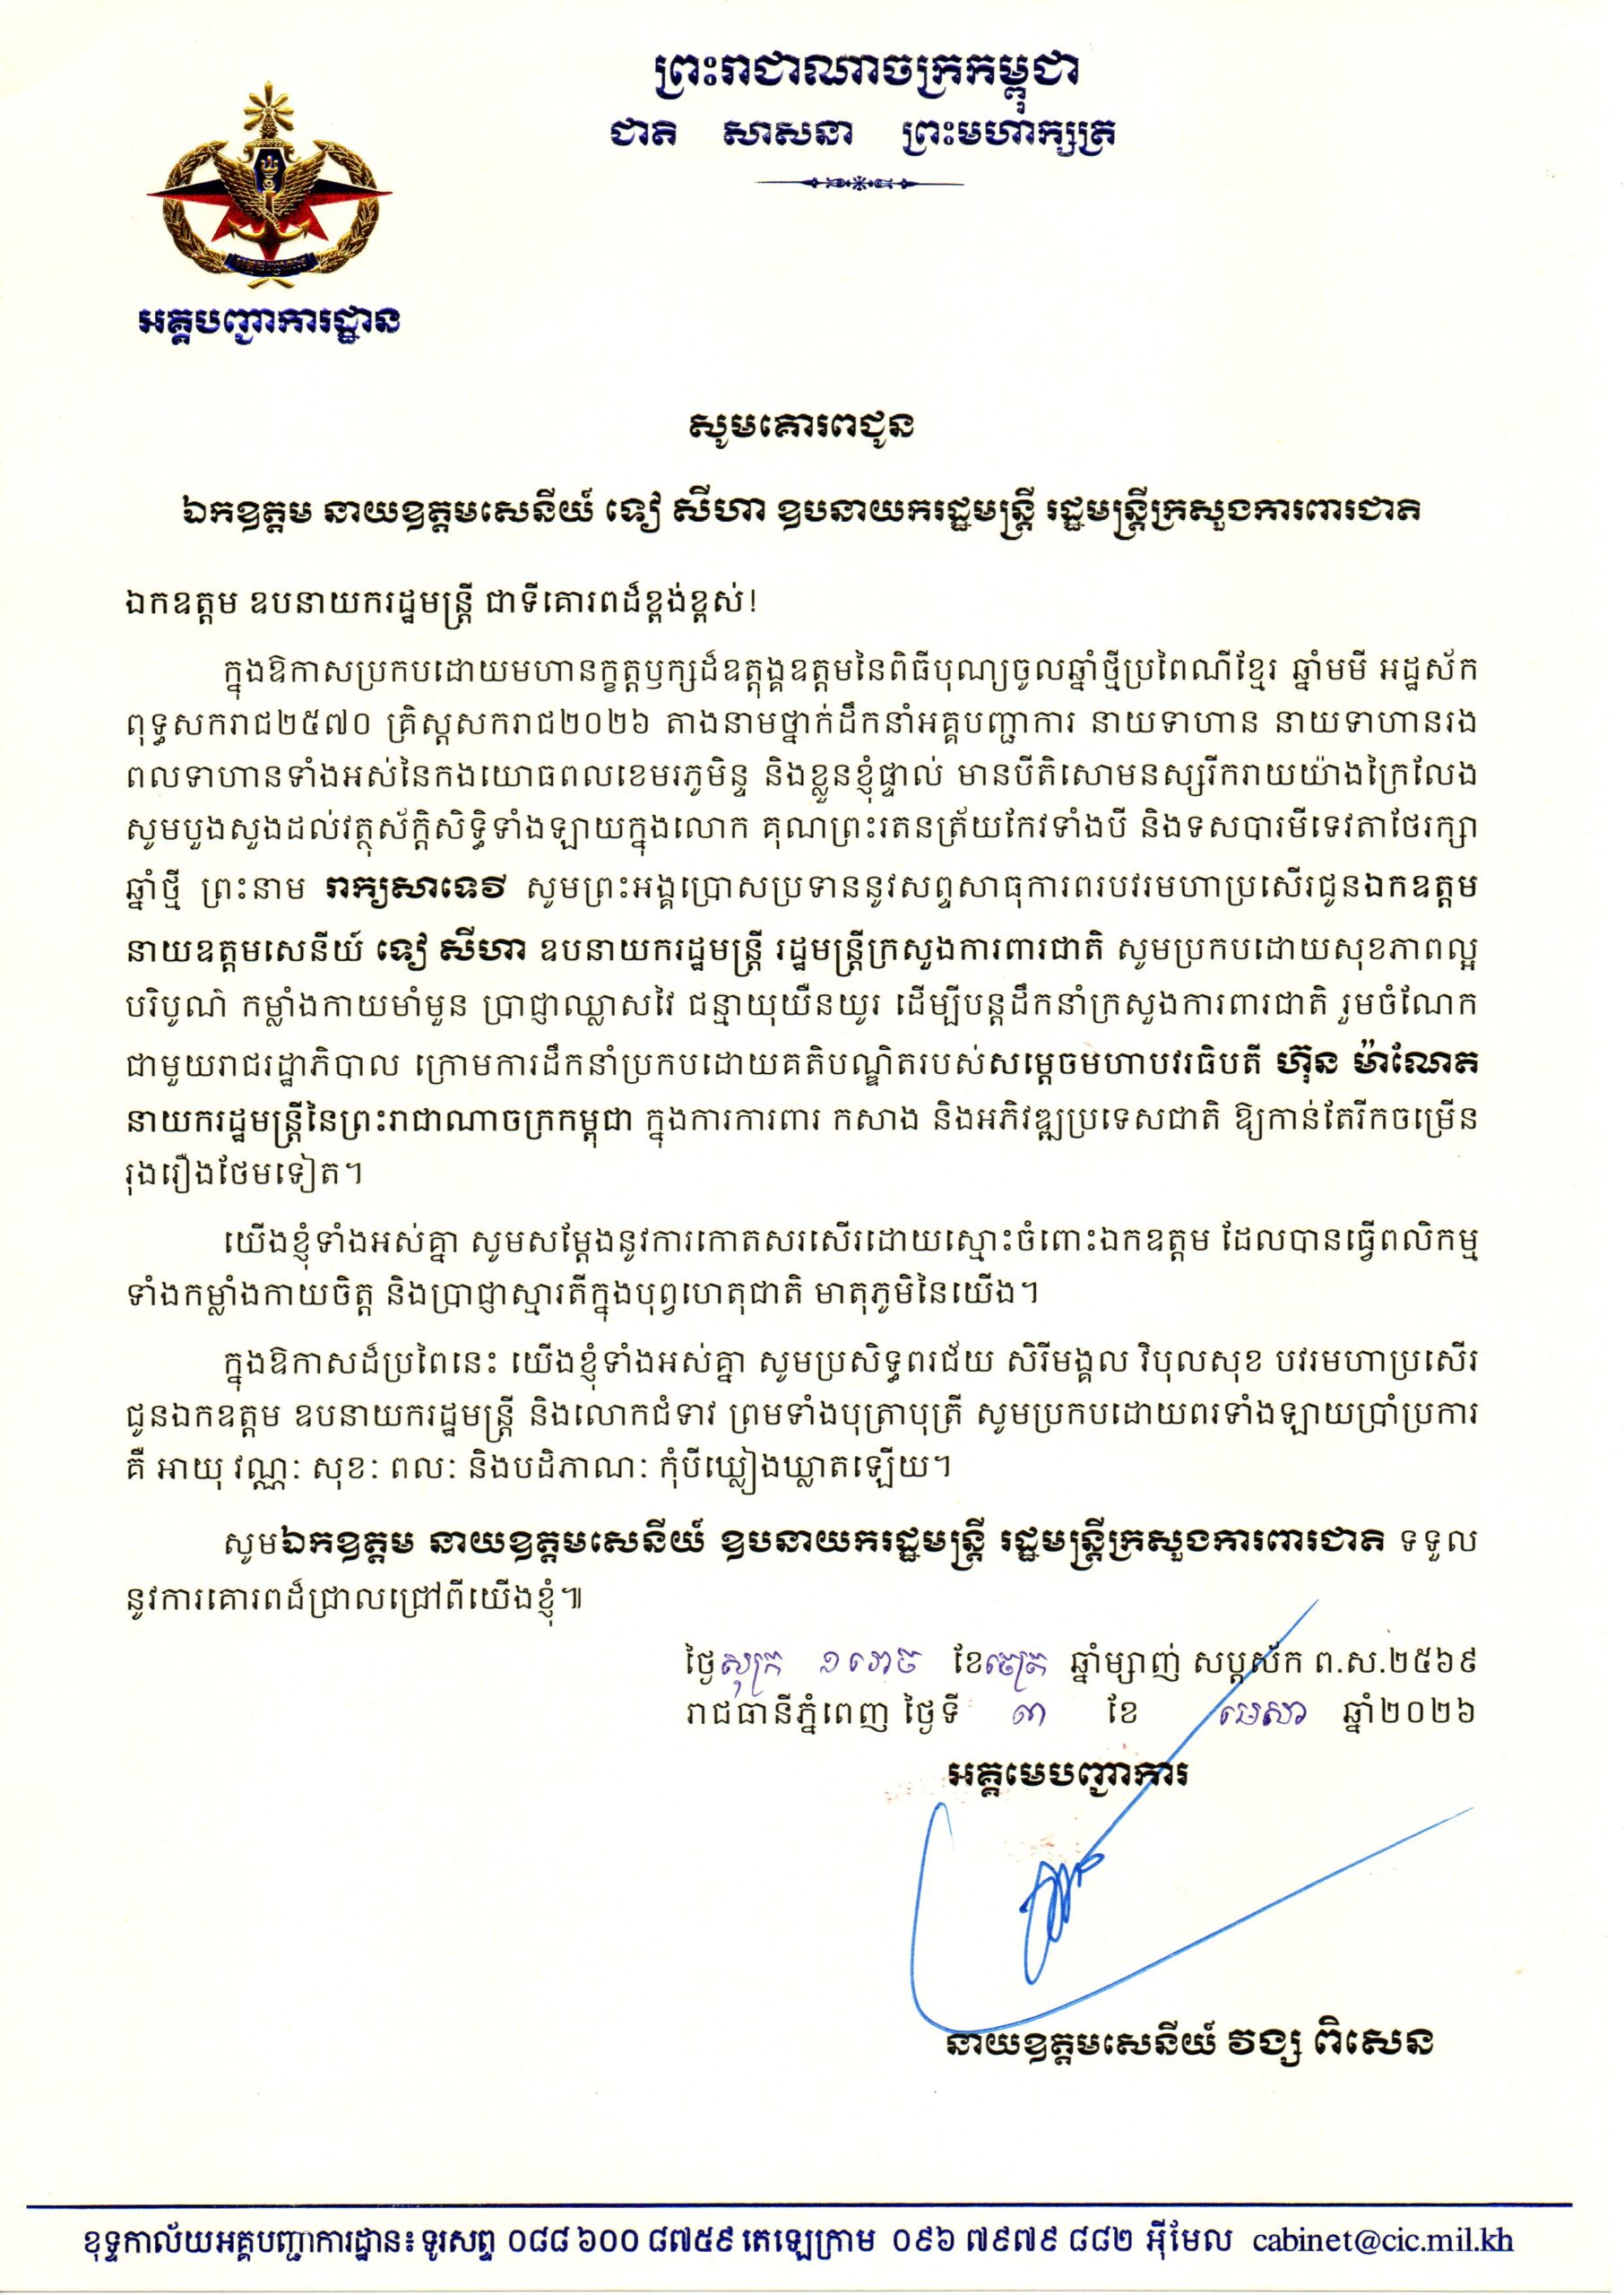 ព្រះរាជាណាចក្រកម្ពុជា
ជាតិ សាសនា ព្រះមហាក្សត្រ
អគ្គបញ្ជាការដ្ឋាន
សូមគោរពជូន
ឯកឧត្តម នាយឧត្តមសេនីយ៍ ទៀ សីហា ឧបនាយករដ្ឋមន្ត្រី រដ្ឋមន្ត្រីក្រសួងការពារជាតិ
ឯកឧត្តម ឧបនាយករដ្ឋមន្ត្រី ជាទីគោរពដ៏ខ្ពង់ខ្ពស់!
ក្នុងឱកាសប្រកបដោយមហានក្ខត្តឫក្សដ៏ឧត្តុង្គឧត្តមនៃពិធីបុណ្យចូលឆ្នាំថ្មីប្រពៃណីខ្មែរ ឆ្នាំមមី អដ្ឋស័ក
ពុទ្ធសករាជ២៥៧០ គ្រិស្តសករាជ២០២៦ តាងនាមថ្នាក់ដឹកនាំអគ្គបញ្ជាការ នាយទាហាន នាយទាហានរង
ពលទាហានទាំងអស់នៃកងយោធពលខេមរភូមិន្ទ និងខ្លួនខ្ញុំផ្ទាល់ មានបីតិសោមនស្សរីករាយយ៉ាងក្រៃលែង
សូមបួងសួងដល់វត្ថុស័ក្តិសិទ្ធិទាំងឡាយក្នុងលោក គុណព្រះរតនត្រ័យកែវទាំងបី និងទសបារមីទេវតាថែរក្សា
ឆ្នាំថ្មី ព្រះនាម រាក្យសាទេវី សូមព្រះអង្គប្រោសប្រទាននូវសព្ទសាធុការពរបវរមហាប្រសើរជូនឯកឧត្តម
នាយឧត្តមសេនីយ៍ ទៀ សីហា ឧបនាយករដ្ឋមន្ត្រី រដ្ឋមន្ត្រីក្រសួងការពារជាតិ សូមប្រកបដោយសុខភាពល្អ
បរិបូណ៌ កម្លាំងកាយមាំមួន ប្រាជ្ញាឈ្លាសវៃ ជន្មាយុយឺនយូរ ដើម្បីបន្តដឹកនាំក្រសួងការពារជាតិ រួមចំណែក
ជាមួយរាជរដ្ឋាភិបាល ក្រោមការដឹកនាំប្រកបដោយគតិបណ្ឌិតរបស់សម្តេចមហាបវរធិបតី ហ៊ុន ម៉ាណែត
នាយករដ្ឋមន្ត្រីនៃព្រះរាជាណាចក្រកម្ពុជា ក្នុងការការពារ កសាង និងអភិវឌ្ឍប្រទេសជាតិ ឱ្យកាន់តែរីកចម្រើន
រុងរឿងថែមទៀត។
យើងខ្ញុំទាំងអស់គ្នា សូមសម្តែងនូវការកោតសរសើរដោយស្មោះចំពោះឯកឧត្តម ដែលបានធ្វើពលិកម្ម
ទាំងកម្លាំងកាយចិត្ត និងប្រាជ្ញាស្មារតីក្នុងបុព្វហេតុជាតិ មាតុភូមិនៃយើង។
ក្នុងឱកាសដ៏ប្រពៃនេះ យើងខ្ញុំទាំងអស់គ្នា សូមប្រសិទ្ធពរជ័យ សិរីមង្គល វិបុលសុខ បវរមហាប្រសើរ
ជូនឯកឧត្តម ឧបនាយករដ្ឋមន្ត្រី និងលោកជំទាវ ព្រមទាំងបុត្រាបុត្រី សូមប្រកបដោយពរទាំងឡាយប្រាំប្រការ
គឺ អាយុ វណ្ណៈ សុខៈ ពលៈ និងបដិភាណៈ កុំបីឃ្លៀងឃ្លាតឡើយ។
សូមឯកឧត្តម នាយឧត្តមសេនីយ៍ ឧបនាយករដ្ឋមន្ត្រី រដ្ឋមន្ត្រីក្រសួងការពារជាតិ ទទួល
នូវការគោរពដ៏ជ្រាលជ្រៅពីយើងខ្ញុំ៕
ថ្ងៃសុក្រ ១រោច ខែចេត្រ ឆ្នាំម្សាញ់ សប្តស័ក ព.ស.២៥៦៩
រាជធានីភ្នំពេញ ថ្ងៃទី ៣ ខែ មេសា ឆ្នាំ២០២៦
អគ្គមេបញ្ជាការ
នាយឧត្តមសេនីយ៍ វង្ស ពិសេន
ខុទ្ទកាល័យអគ្គបញ្ជាការដ្ឋាន៖ ទូរសព្ទ ០៨៨ ៦០០ ៨៧៥៩ តេឡេក្រាម ០៩៦ ៧៩៧៩ ៨៨២ អ៊ីមែល cabinet@cic.mil.kh